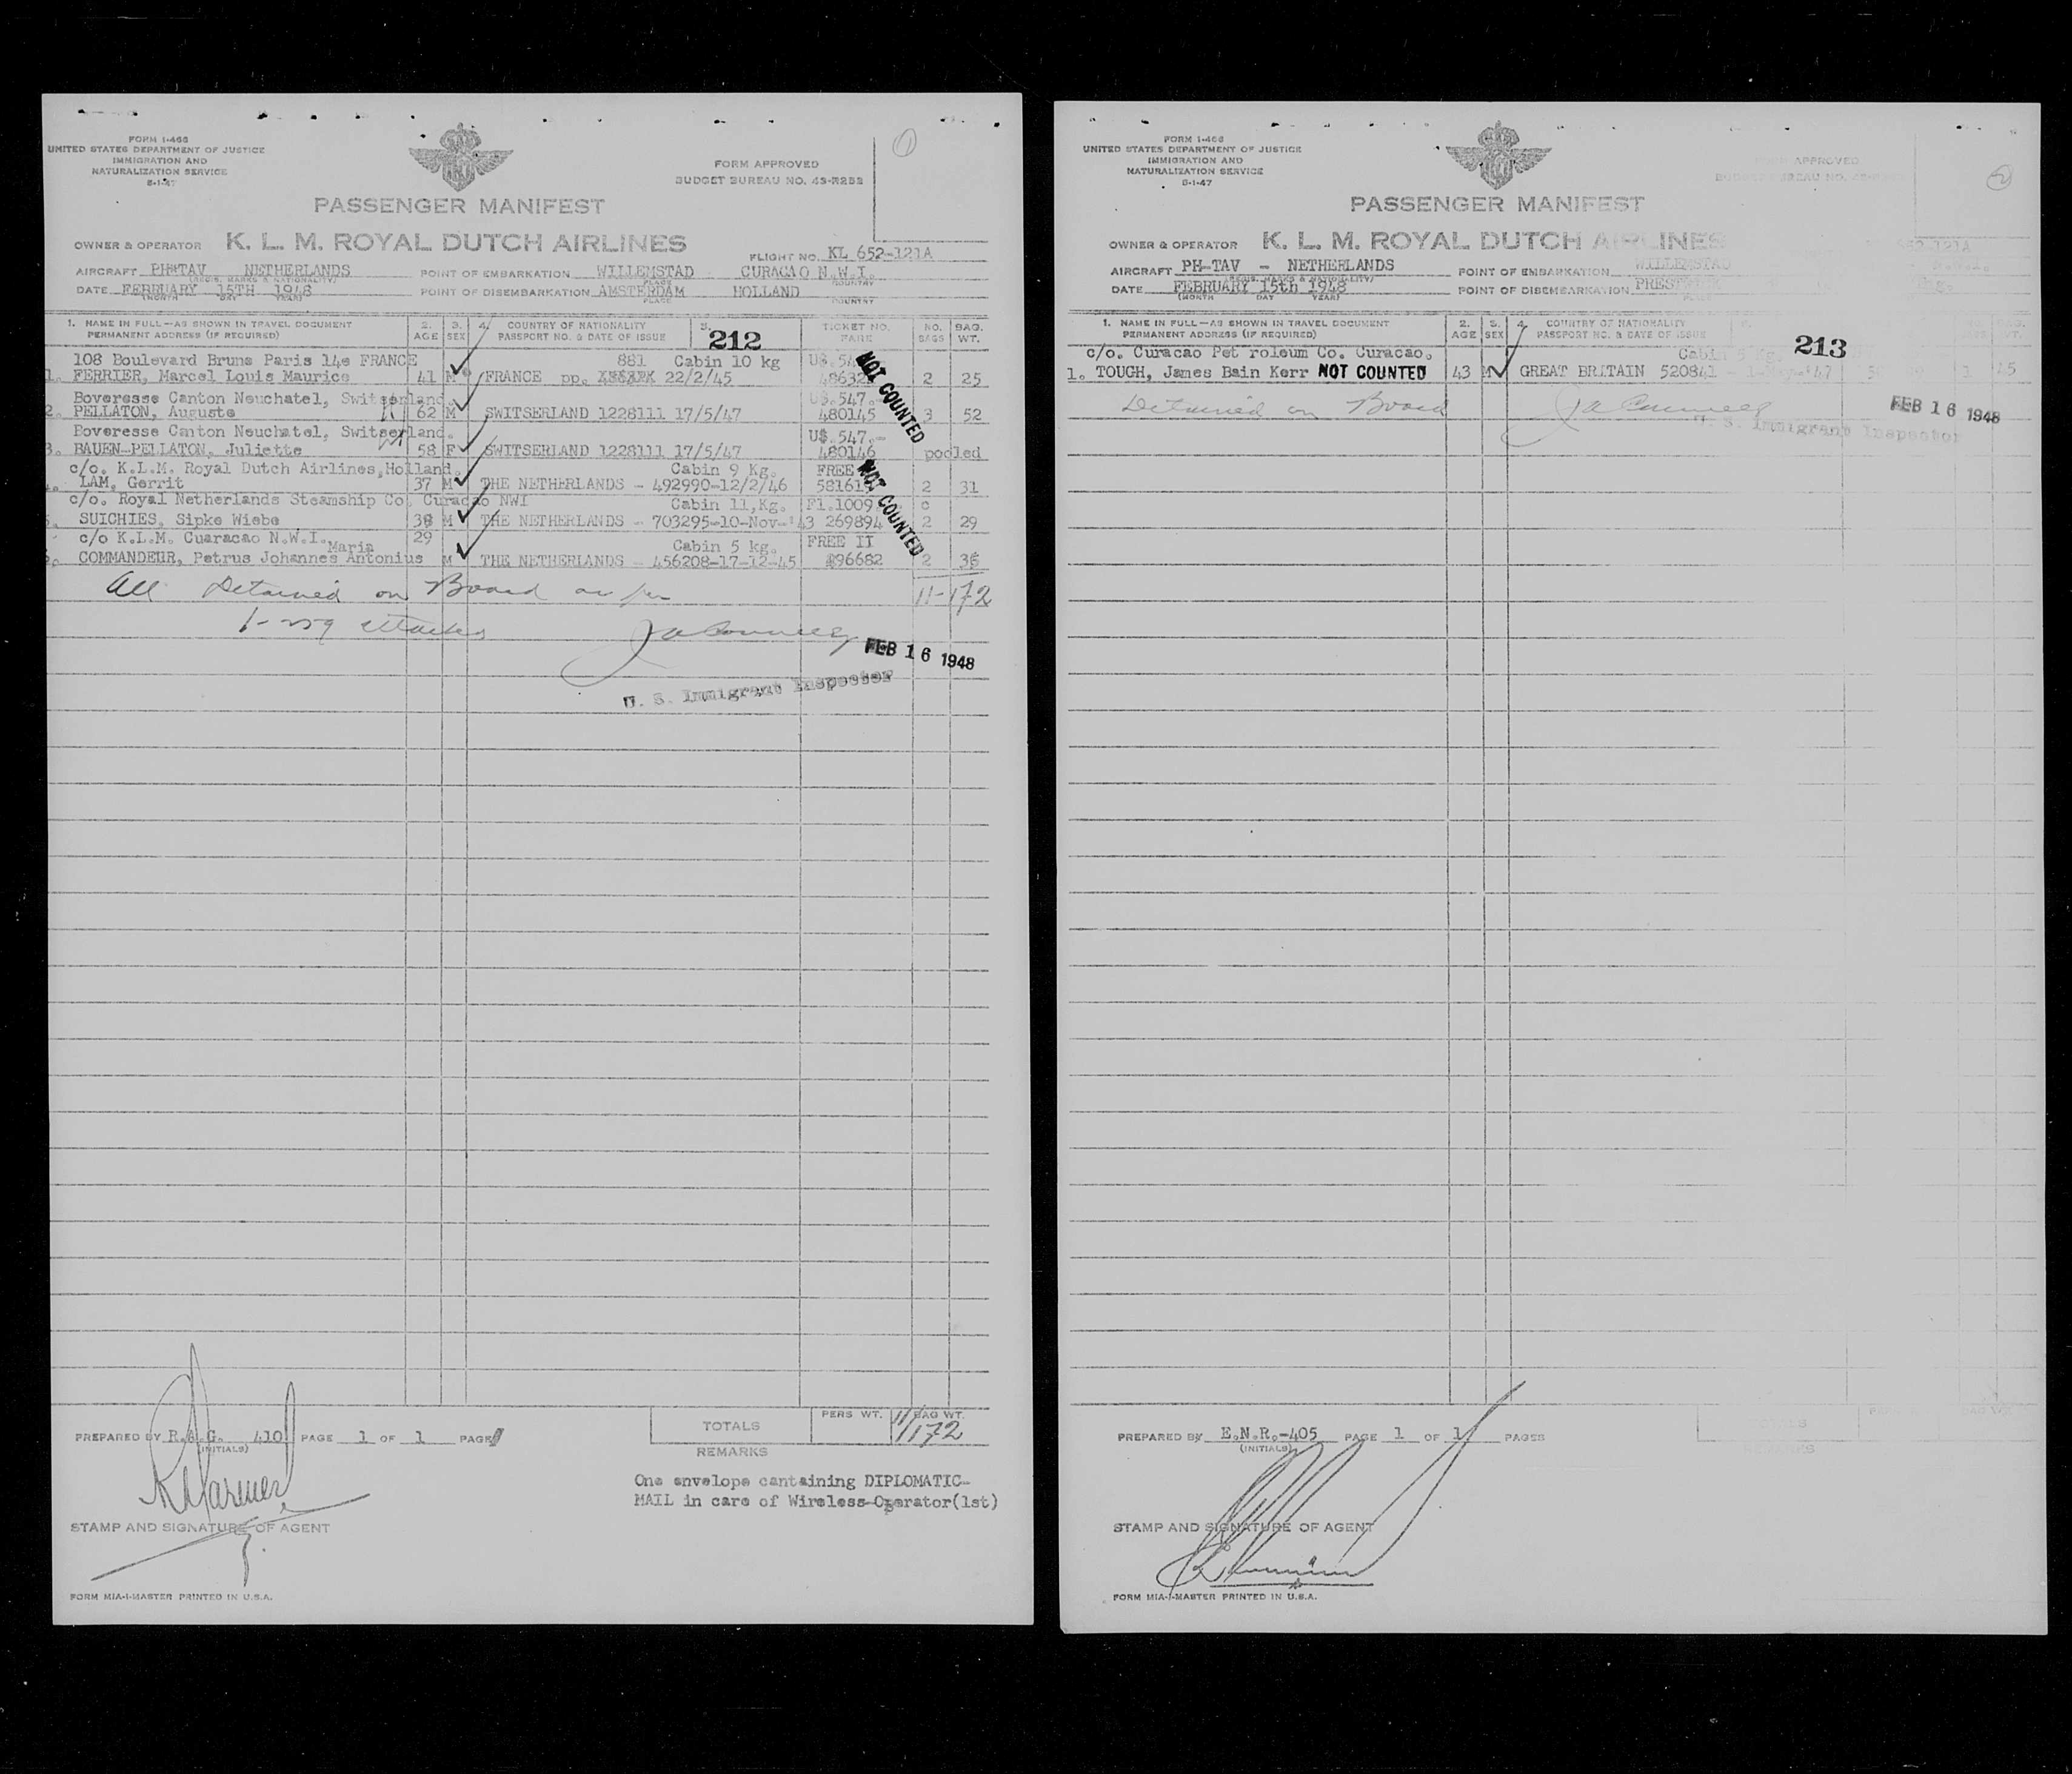 FORM I-466
UNITED STATES DEPARTMENT OF JUSTICE
IMMIGRATION AND
NATURALIZATION SERVICE
8-1-47
1
FORM APPROVED
BUDGET BUREAU NO. 43-R252
PASSENGER MANIFEST
OWNER & OPERATOR K. L. M. ROYAL DUTCH AIRLINES
FLIGHT NO. KL 652-121A
AIRCRAFT PH-TAV NETHERLANDS POINT OF EMBARKATION WILLEMSTAD CURACAO N.W.I.
(REGIS. MARKS & NATIONALITY) PLACE COUNTRY
DATE FEBRUARY 15TH 1948 POINT OF DISEMBARKATION AMSTERDAM HOLLAND
(MONTH DAY YEAR) PLACE COUNTRY
1. NAME IN FULL—AS SHOWN IN TRAVEL DOCUMENT 2. 3. 4. COUNTRY OF NATIONALITY 5. TICKET NO. NO. BAG.
PERMANENT ADDRESS (IF REQUIRED) AGE SEX PASSPORT NO. & DATE OF ISSUE 212 FARE BAGS WT.
108 Boulevard Brune Paris 14e FRANCE 881 Cabin 10 kg U$.
1. FERRIER, Marcel Louis Maurice 41 M FRANCE pp. 22/2/45 2 25
NOT COUNTED
Boveresse Canton Neuchatel, Switserland. U$.547.-
2. PELLATON, Auguste 62 M SWITSERLAND 1228111 17/5/47 480145 3 52
Boveresse Canton Neuchatel, Switserland. U$.547.-
3. BAUEN-PELLATON, Juliette 58 F SWITSERLAND 1228111 17/5/47 480146 pooled
c/o. K.L.M. Royal Dutch Airlines, Holland. Cabin 9 Kg. FREE
LAM, Gerrit 37 M THE NETHERLANDS - 492990-12/2/46 2 31
NOT COUNTED
c/o. Royal Netherlands Steamship Co. Curacao NWI Cabin 11,Kg. Fl.1009
SUICHIES, Sipke Wiebe M THE NETHERLANDS - 703295-10-Nov-'43 269894 2 29
c/o K.L.M. Cuaracao N.W.I. Maria 29 Cabin 5 kg. FREE II
COMMANDEUR, Petrus Johannes Antonius M THE NETHERLANDS - 456208-17-12-45 96682 2
All Detained on Board as per 11-172
I-259 attached
FEB 16 1948
U. S. Immigrant Inspector
TOTALS PERS WT. BAG WT.
11/172
PREPARED BY R.A.G. 410 PAGE 1 OF 1 PAGE
(INITIALS)
REMARKS
One envelope cantaining DIPLOMATIC-
MAIL in care of Wireless-Operator(1st)
STAMP AND SIGNATURE OF AGENT
FORM MIA-I-MASTER PRINTED IN U.S.A.
FORM I-466
UNITED STATES DEPARTMENT OF JUSTICE
IMMIGRATION AND
NATURALIZATION SERVICE
8-1-47
APPROVED
2
PASSENGER MANIFEST
OWNER & OPERATOR K. L. M. ROYAL DUTCH AIRLINES
652-121A
AIRCRAFT PH-TAV - NETHERLANDS POINT OF EMBARKATION WILLEMSTAD
(REGIS. MARKS & NATIONALITY)
DATE FEBRUARY 15th 1948 POINT OF DISEMBARKATION
(MONTH DAY YEAR) PLACE
1. NAME IN FULL—AS SHOWN IN TRAVEL DOCUMENT 2. 3. 4. COUNTRY OF NATIONALITY
PERMANENT ADDRESS (IF REQUIRED) AGE SEX PASSPORT NO. & DATE OF ISSUE 213
c/o. Curacao Pet roleum Co. Curacao. Cabin 5 Kg.
1. TOUGH, James Bain Kerr NOT COUNTED 43 M GREAT BRITAIN 520841
Detained on Board
FEB 16 1948
U. S. Immigrant Inspector
PREPARED BY E.N.R.-405 PAGE 1 OF 1 PAGES
(INITIALS)
TOTALS
REMARKS
STAMP AND SIGNATURE OF AGENT
FORM MIA-I-MASTER PRINTED IN U.S.A.